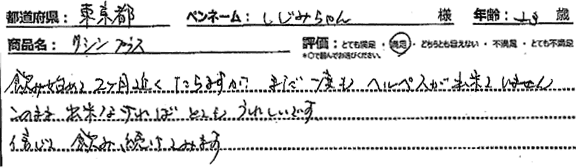 都道府県：東京都 ペンネーム：しじみちゃん 様 年齢： 歳
商品名：リシンプラス 評価：とても満足・満足・どちらとも言えない・不満足・とても不満足
*○で囲んでお選びください。
飲み始めて2ヶ月近くたちますが まだ一度も ヘルペスが出来ていません
このまま出来なければとてもうれしいです
信じて飲み続けてみます